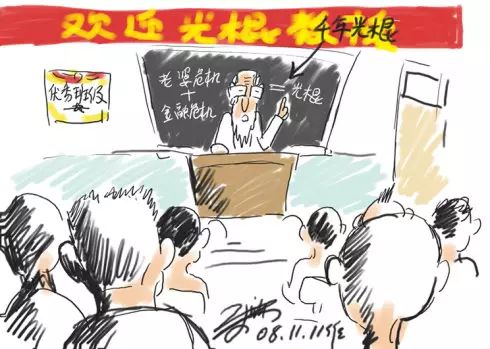 欢迎光棍教授
千年光棍
老婆危机
+
金融危机
=光棍
优秀班级
08.11.11作